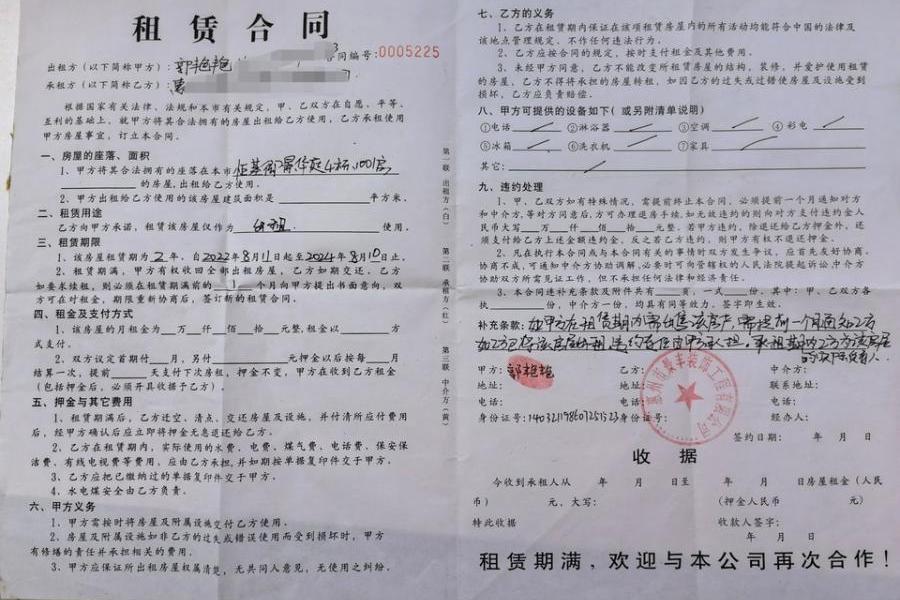 租赁合同
合同编号:0005225
出租方(以下简称甲方):郭艳艳
承租方(以下简称乙方):
根据国家有关法律、法规和本市有关规定,甲、乙双方在自愿、平等、
互利的基础上,就甲方将其合法拥有的房屋出租给乙方使用,乙方承租使用
甲方房屋事宜,订立本合同。
一、房屋的座落、面积
1、甲方将其合法拥有的座落在本市 4栋1001房
的房屋,出租给乙方使用。
2、甲方出租给乙方使用的该房屋建筑面积是 平方米。
二、租赁用途
乙方向甲方承诺,租赁该房屋仅作为 使用。
三、租赁期限
1、该房屋租赁期为2年,自2022年8月11日起至2024年8月10日止。
2、租赁期满,甲方有权收回全部出租房屋,乙方如期交还。乙方
如要求续租,则必须在租赁期满前的1个月向甲方提出书面意向,双
方可在对租金,期限重新协商后,签订新的租赁合同。
四、租金及支付方式
1、该房屋的月租金为 万 仟 佰 拾 元整,租金以 方
式支付。
2、双方议定首期付 月,另付 元押金以后按每 月
结算一次,提前 天支付下次房租,押金不变,甲方在收到乙方租金
(包括押金后,必须开具收据予乙方)。
五、押金与其它费用
1、租赁期满后,乙方迁空、清点、交还房屋及设施,并付清所应付费用
后,经甲方确认后应立即将押金无息退还给乙方。
2、乙方在租赁期内,实际使用的水费、电费、煤气费、电话费、保安保
洁费、有线电视费等费用,应由乙方承担,并如期按单据复印件交于甲方。
3、乙方应把已缴纳过的单据复印件交于甲方。
4、水电煤安全由乙方负责。
六、甲方义务
1、甲方需按时将房屋及附属设施交付乙方使用。
2、房屋及附属设施如非乙方的过失或错误使用而受到损坏时,甲方
有修缮的责任并承担相关的费用。
3、甲方应保证所出租房屋权属清楚,无共同人意见,无使用之纠纷。
第一联 出租方(白) 第二联 承租方(红) 第三联 中介方(黄)
七、乙方的义务
1、乙方在租赁期内保证在该项租赁房屋内的所有活动均能符合中国的法律及
该地点管理规定,不作任何违法行为。
2、乙方应按合同的规定,按时支付租金及其他费用。
3、未经甲方同意,乙方不能改变所租赁房屋的结构,装修,并爱护使用租赁
的房屋,乙方不得将承担的房屋转租,如因乙方的过失或过错使房屋及设施受到
损坏,乙方应负责赔偿。
八、甲方可提供的设备如下(或另附清单说明)
①电话 ②淋浴器 ③空调 ④彩电
⑤冰箱 ⑥洗衣机 ⑦家具
其它:
九、违约处理
1、甲、乙双方如有特殊情况,需提前终止本合同,必须提前一个月通知对方
和中介方,等对方同意后,方可办理退房手续,如无效违约的则向对方支付违约金人
民币大写 万 仟 佰 拾 元整。若甲方违约,除退还给乙方押金外,还
须支付给乙方上述金额违约金,反之若乙方违约,则甲方有权不退还押金。
2、凡在执行本合同或与本合同有关的事情时双方发生争议,应首先友好协商,
协商不成,可通知中介方协助调解,必要时可向管辖权的人民法院提起诉讼,中介方
协助双方所需见证工作,但不承担任何法律和经济责任。
3、本合同连补充条款及附件共有 页,一式 份,其中:甲、乙双方各
执 份,中介方一份,均具有同等效力。签字即生效。
补充条款:如甲方在租赁期内需出售该房产,需提前一个月通知乙方
甲方:郭艳艳 乙方: 中介方:
地址: 地址: 联系地址:
电话: 电话: 电话:
身份证号:140321198607251523 身份证号: 经办人:
签约日期: 年 月 日
收据
今收到承租人从 年 月 日至 年 月 日房屋租金(人民
币) 元,大写: (押金人民币 元)
特此收据 收款人签字:
年 月 日
租赁期满,欢迎与本公司再次合作!